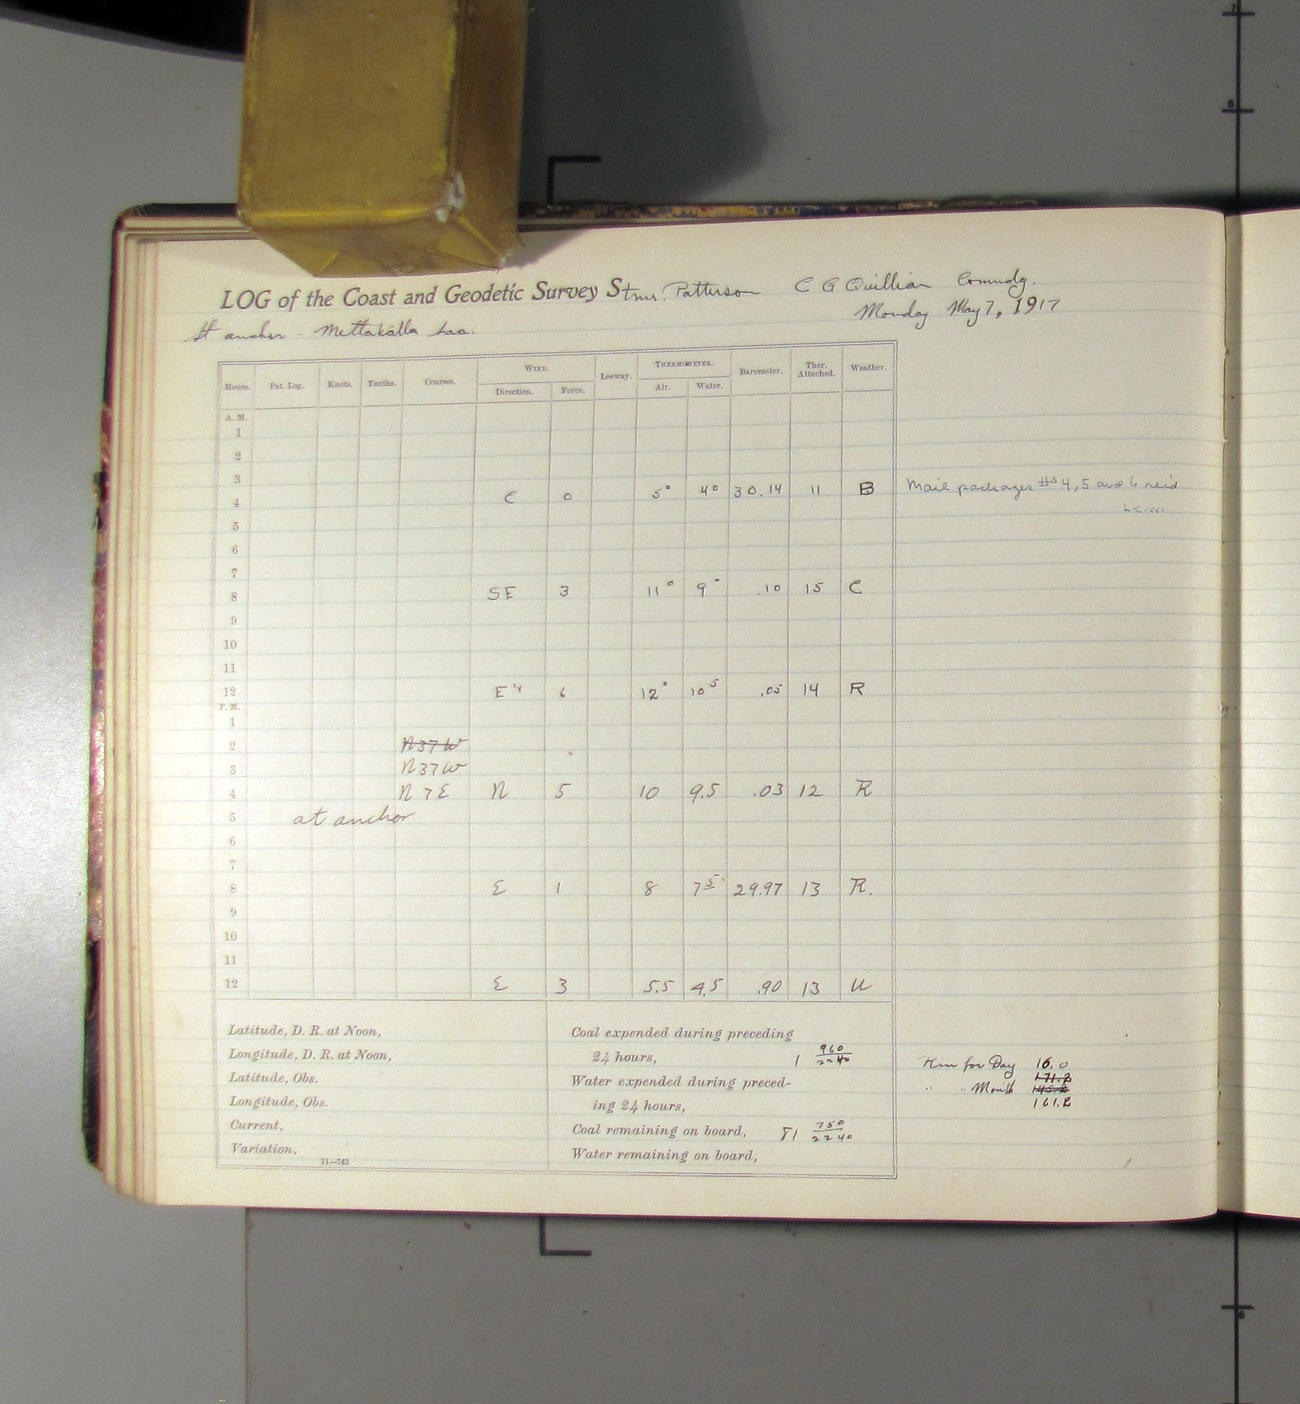 LOG of the Coast and Geodetic Survey Stmr. Patterson C G Quillian Comndg.
Monday May 7, 1917
At anchor - Mettakatla
Hours. Pat. Log. Knots. Tenths. Courses. WIND. Direction. Force. Leeway. THERMOMETER. Air. Water. Barometer. Ther. Attached. Weather.
A. M.
1
2
3
4 C 0 5° 4° 30.14 11 B Mail packages #s 4, 5 and 6 rec'd
5
6
7
8 SE 3 11° 9° .10 15 C
9
10
11
12 E'y 6 12° 10 5 .05 14 R
P. M.
1
2 N37W
3 N37W
4 N 7 E N 5 10 9.5 .03 12 R
5 at anchor
6
7
8 E 1 8 7 5 29.97 13 R.
9
10
11
12 E 3 5.5 4.5 .90 13 U
Latitude, D. R. at Noon,
Longitude, D. R. at Noon,
Latitude, Obs.
Longitude, Obs.
Current,
Variation,
11—743
Coal expended during preceding
24 hours, 1 960/2240
Water expended during preced-
ing 24 hours,
Coal remaining on board, 81 750/2240
Water remaining on board,
for Day 16.0
" " Month 171.2
145.2
161.2
7
8
6